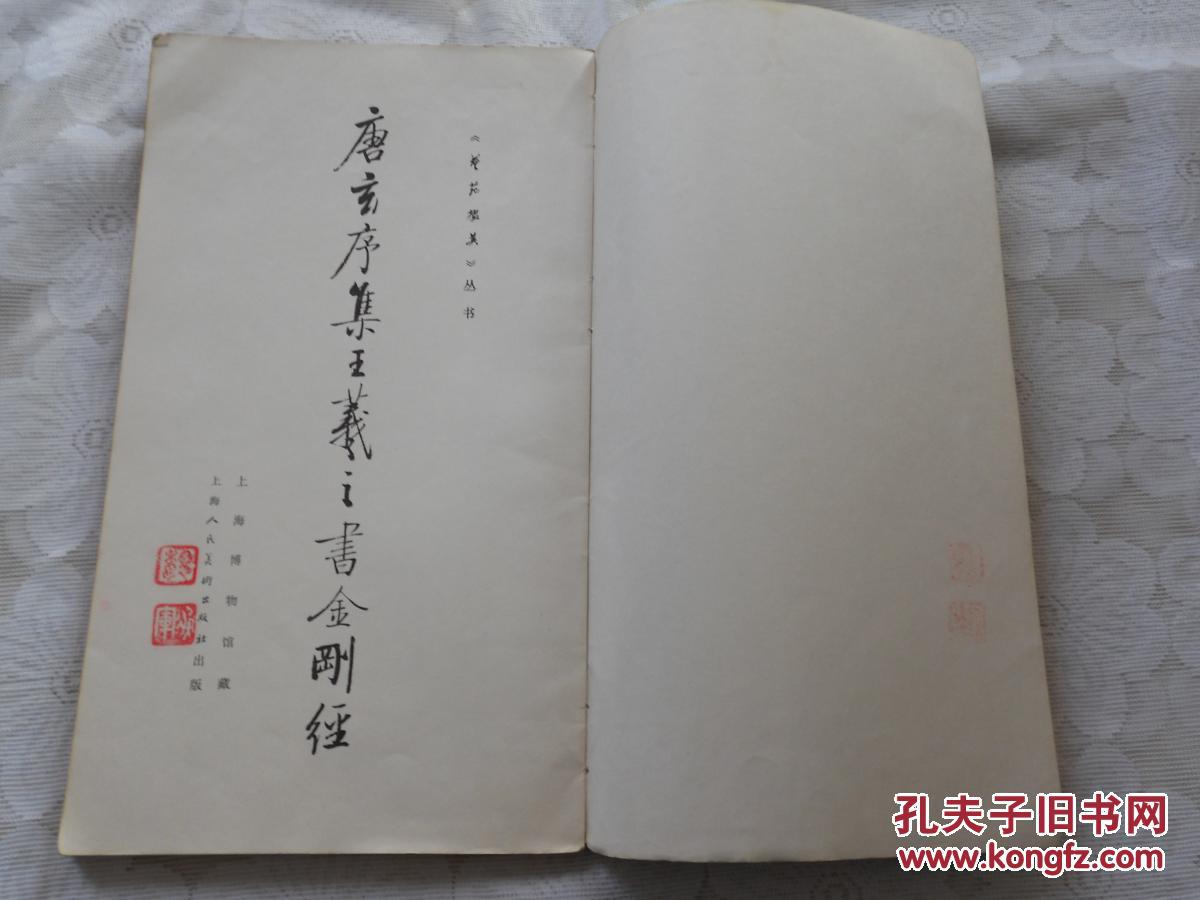 《艺苑掇英》丛书
唐玄序集王羲之書金剛經
上海博物馆藏
上海人民美術出版社出版
孔夫子旧书网
www.kongfz.com